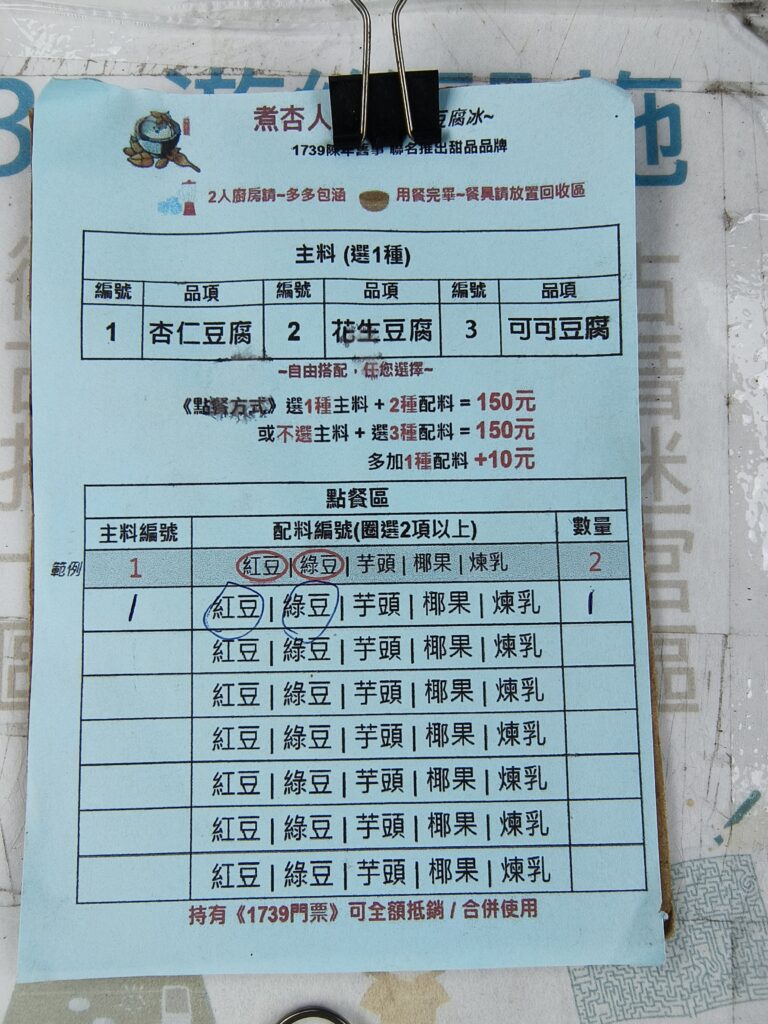 煮杏人 豆腐冰~
1739陳年舊事 聯名推出甜品品牌
2人廚房請~多多包涵 用餐完畢~餐具請放置回收區
主料 (選1種)
編號 品項 編號 品項 編號 品項
1 杏仁豆腐 2 花生豆腐 3 可可豆腐
~自由搭配，任您選擇~
《點餐方式》選1種主料 + 2種配料 = 150元
或不選主料 + 選3種配料 = 150元
多加1種配料 +10元
點餐區
主料編號 配料編號(圈選2項以上) 數量
範例 1 紅豆 | 綠豆 | 芋頭 | 椰果 | 煉乳 2
1 紅豆 | 綠豆 | 芋頭 | 椰果 | 煉乳 1
紅豆 | 綠豆 | 芋頭 | 椰果 | 煉乳
紅豆 | 綠豆 | 芋頭 | 椰果 | 煉乳
紅豆 | 綠豆 | 芋頭 | 椰果 | 煉乳
紅豆 | 綠豆 | 芋頭 | 椰果 | 煉乳
紅豆 | 綠豆 | 芋頭 | 椰果 | 煉乳
紅豆 | 綠豆 | 芋頭 | 椰果 | 煉乳
持有《1739門票》可全額抵銷 / 合併使用